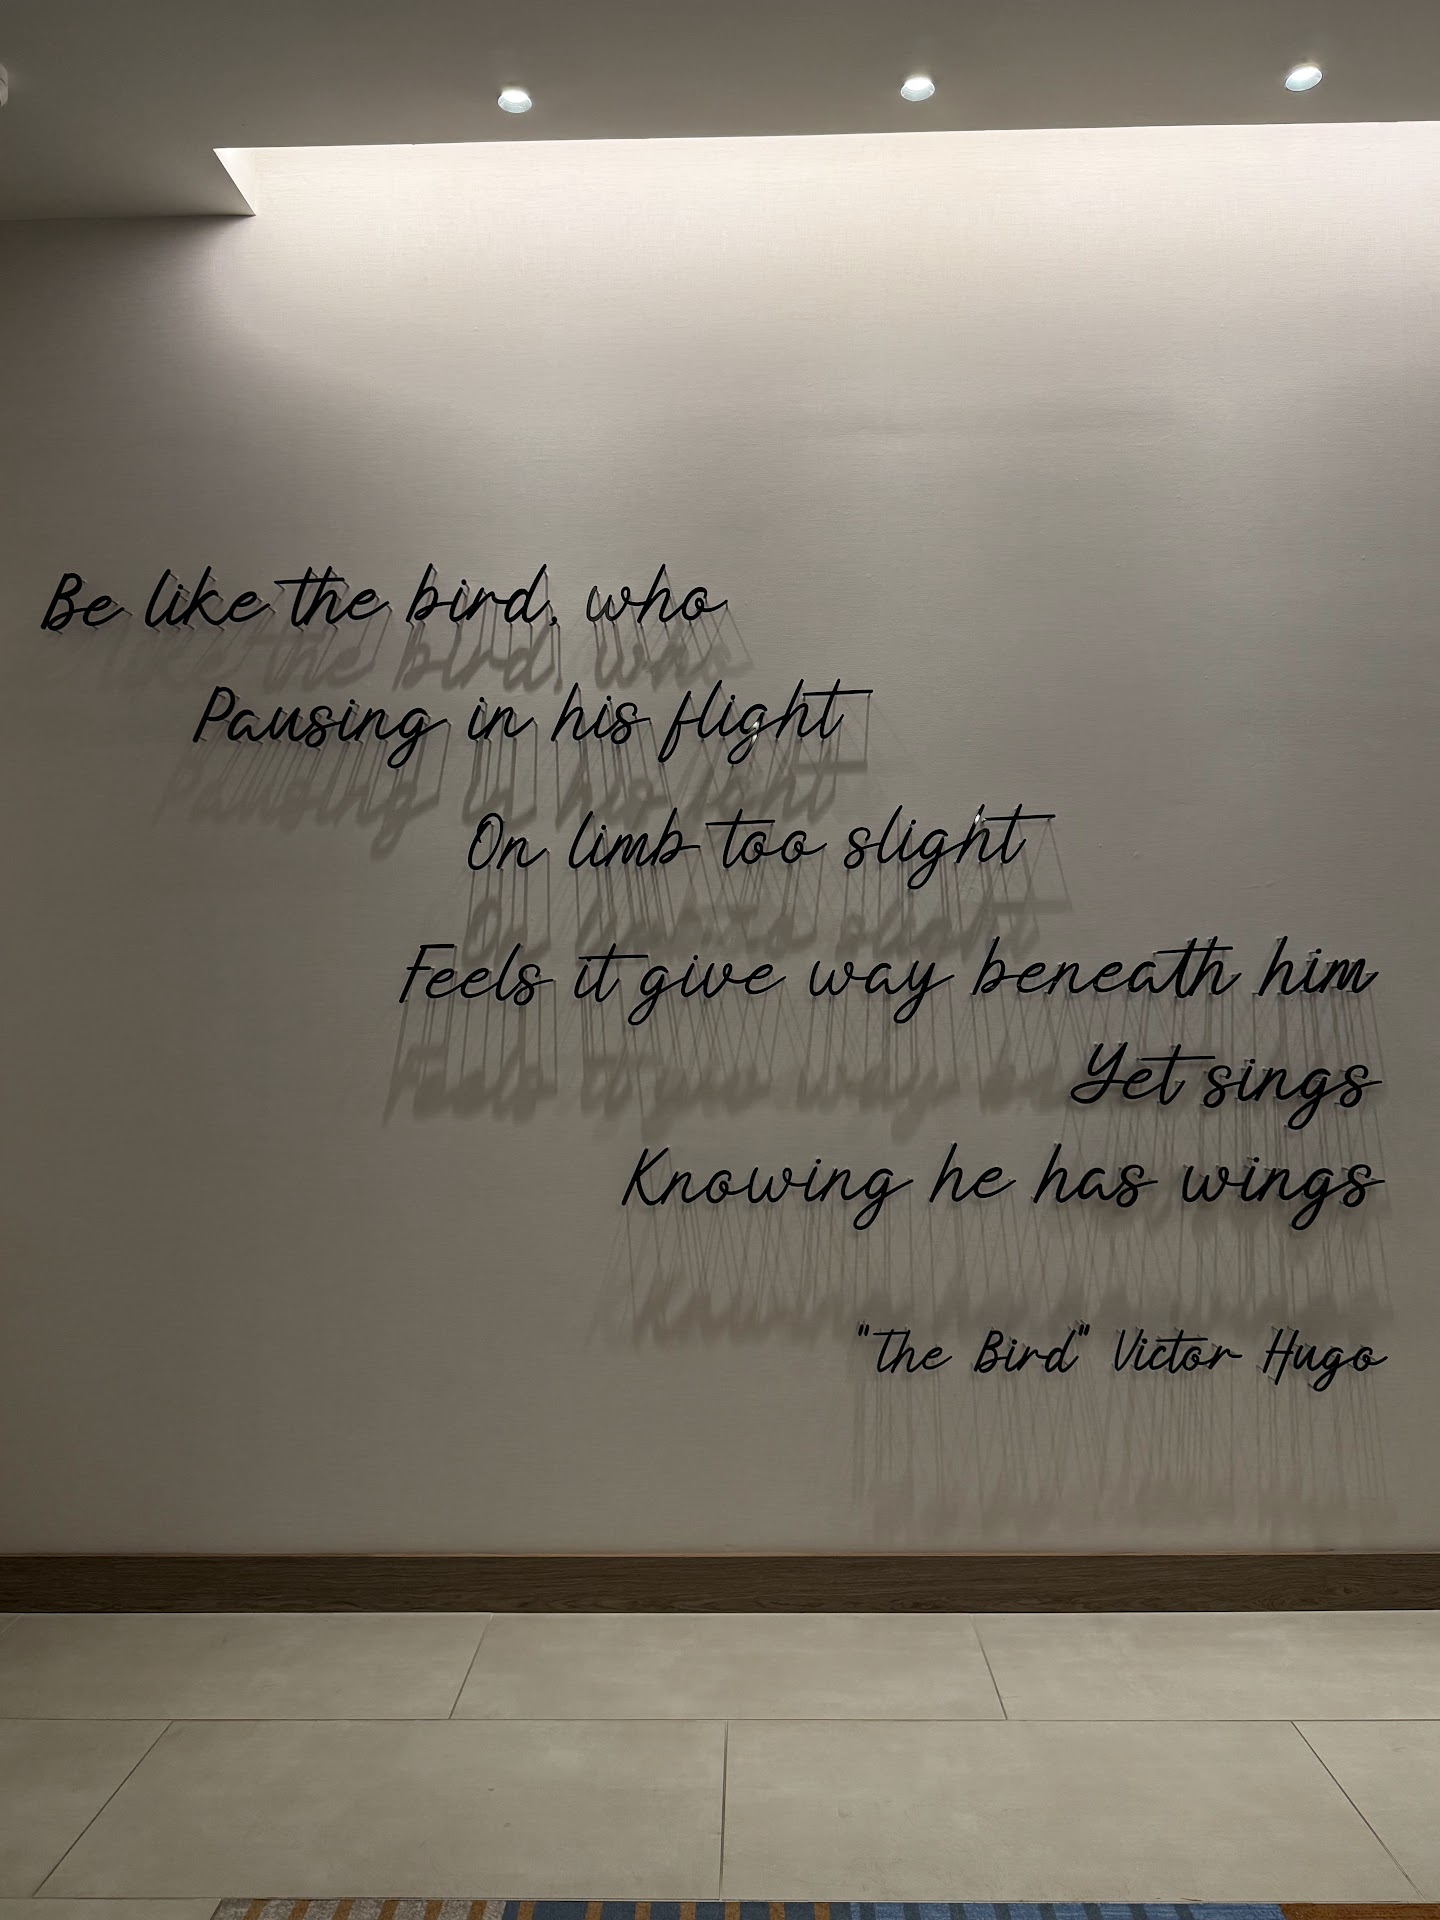 Be like the bird, who
Pausing in his flight
On limb too slight
Feels it give way beneath him
Yet sings
Knowing he has wings
"The Bird" Victor Hugo